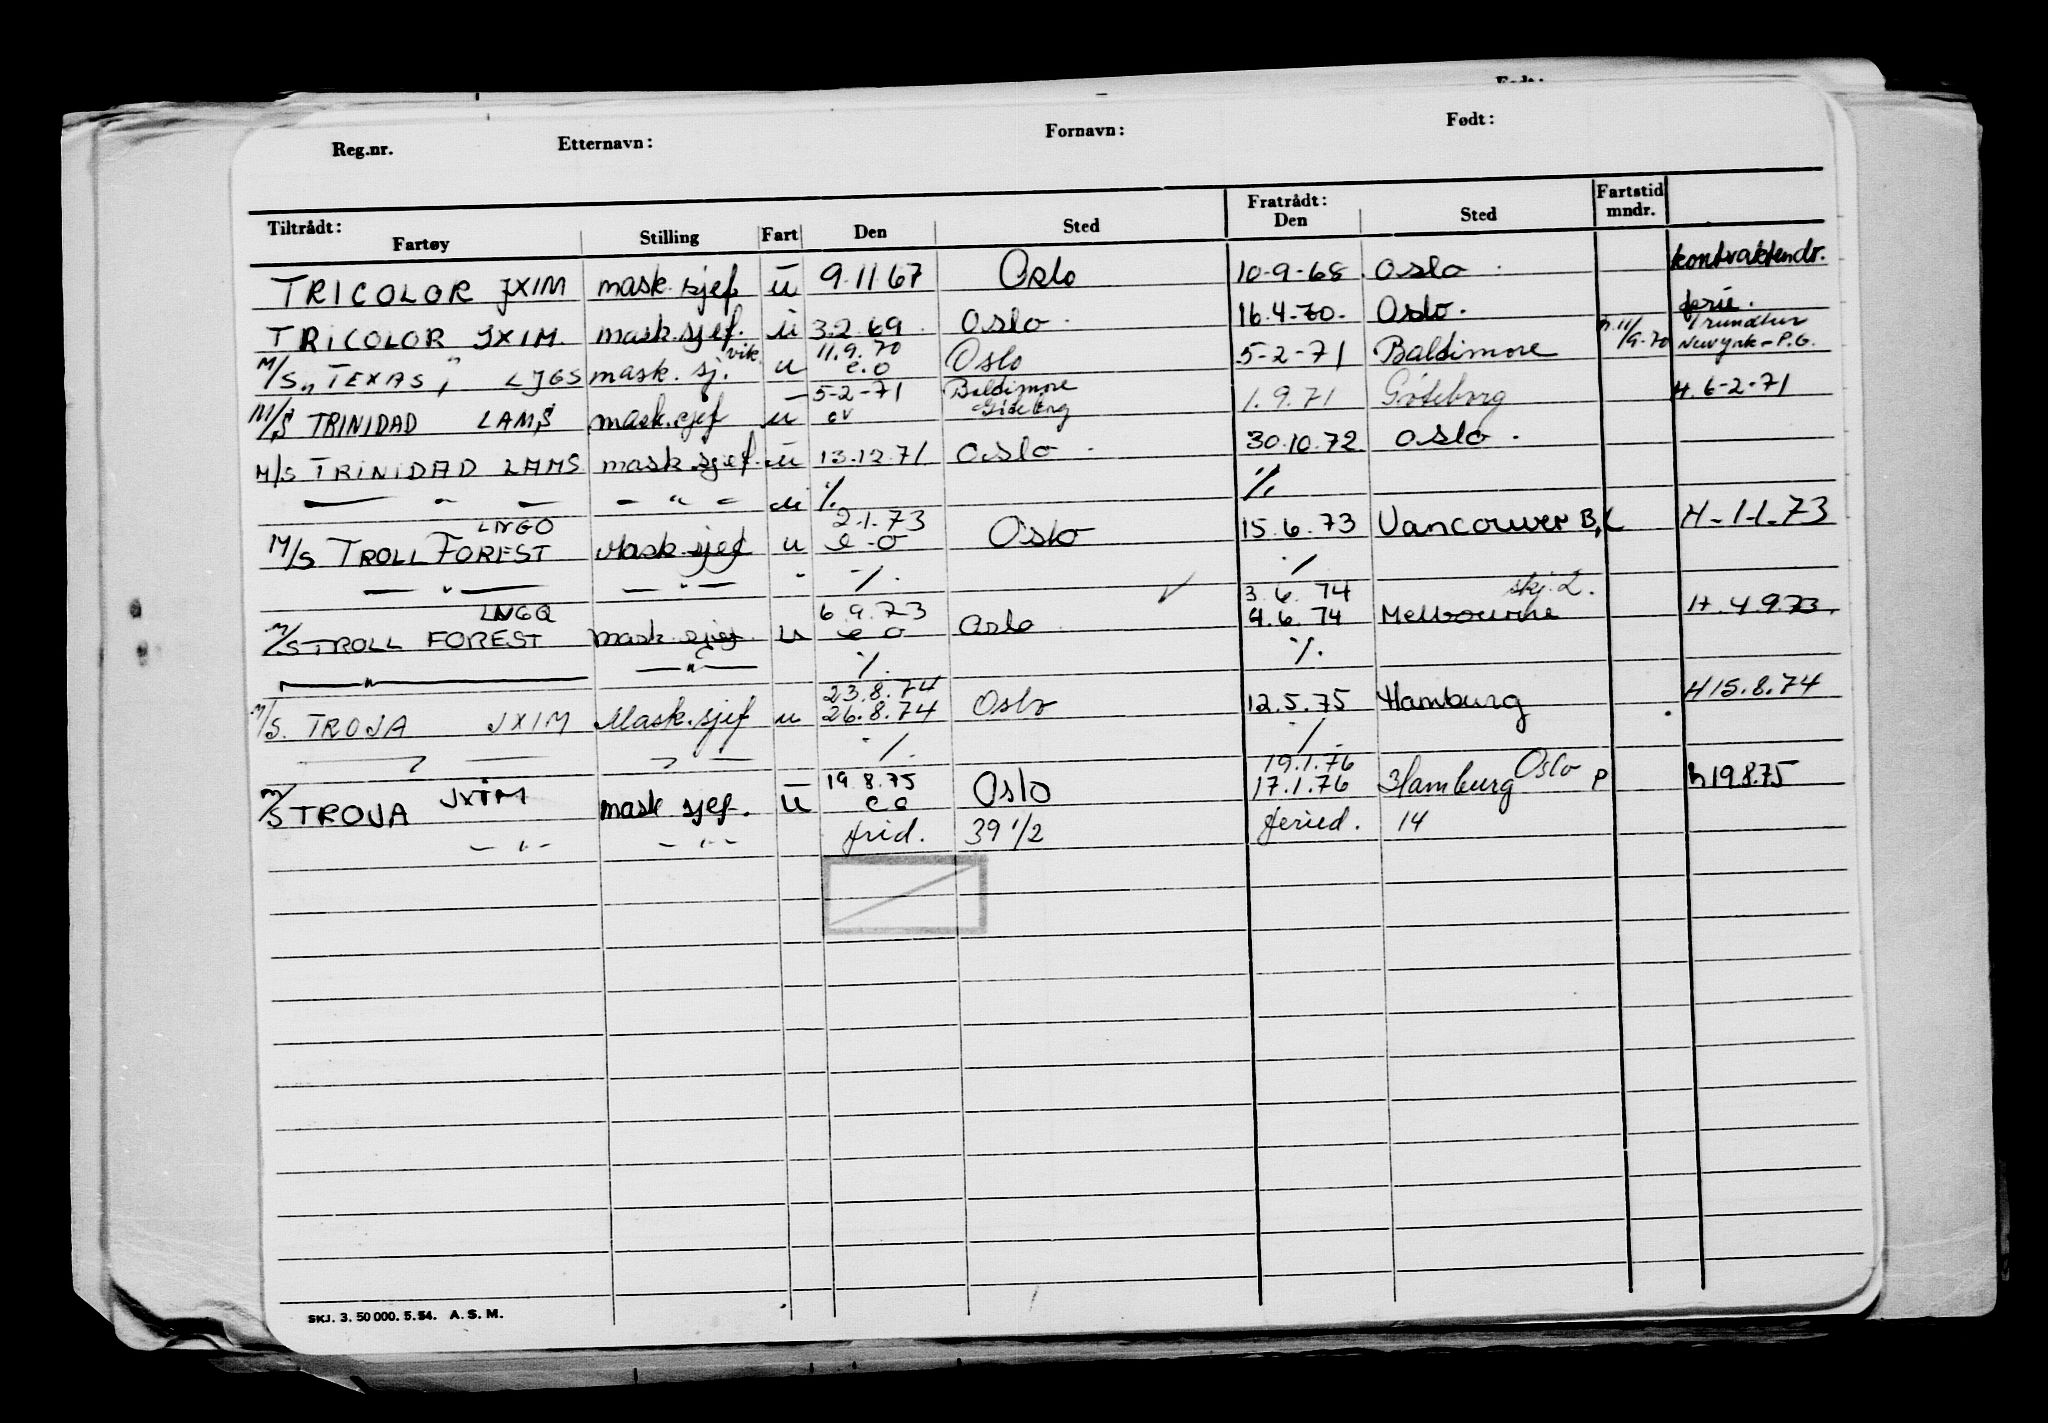 Reg.nr. Etternavn: Fornavn: Født:
Tiltrådt: Fratrådt: Fartstid
Fartøy Stilling Fart Den Sted Den Sted mndr.
TRICOLOR JXIM mask.sjef u 9.11.67 Oslo 10-9-68 Oslo kontraktendr.
TRICOLOR JXIM mask.sjef. u 3.2.69 Oslo 16.4-70. Oslo. ferie.
vik. 11.9.70 1 rundtur
M/S „TEXAS" LJGS mask. sj. u e.o Oslo 5-2-71 Baltimore 11/9-70 Newyrk-P.G.
5-2-71 Baltimore
M/S TRINIDAD LAMS mask.sjef u ov Göteborg 1.9.71 Göteborg H. 6-2-71
M/S TRINIDAD LAMS mask.sjef. u 13.12.71 Oslo 30.10.72 Oslo.
— " — — " — u ·/. ·/.
LNGO 2.1.73
M/S TROLL FOREST Mask.sjef u e-o Oslo 15.6.73 Vancouver B,C H-1-1.73
— " — — " — " ·/. ·/.
LNGQ 6.9.73 3.6.74 skj.2.
M/S TROLL FOREST mask.sjef. u e o Oslo 4.6.74 Melbourne H. 4.9.73.
— " — — " — ·/. ·/.
23.8.74
M/S. TROJA JXIM Mask.sjef u 26.8.74 Oslo 12.5.75 Hamburg H 15.8.74
— " — — " — ·/. ·/.
JXIM 19.8.75 19.1.76 Oslo
M/S TROJA mask sjef. u e o Oslo 17.1.76 Hamburg P h 19.8.75
— " — — " — frid. 39 1/2 feried. 14
SKJ. 3. 50 000. 5.54. A. S. M.